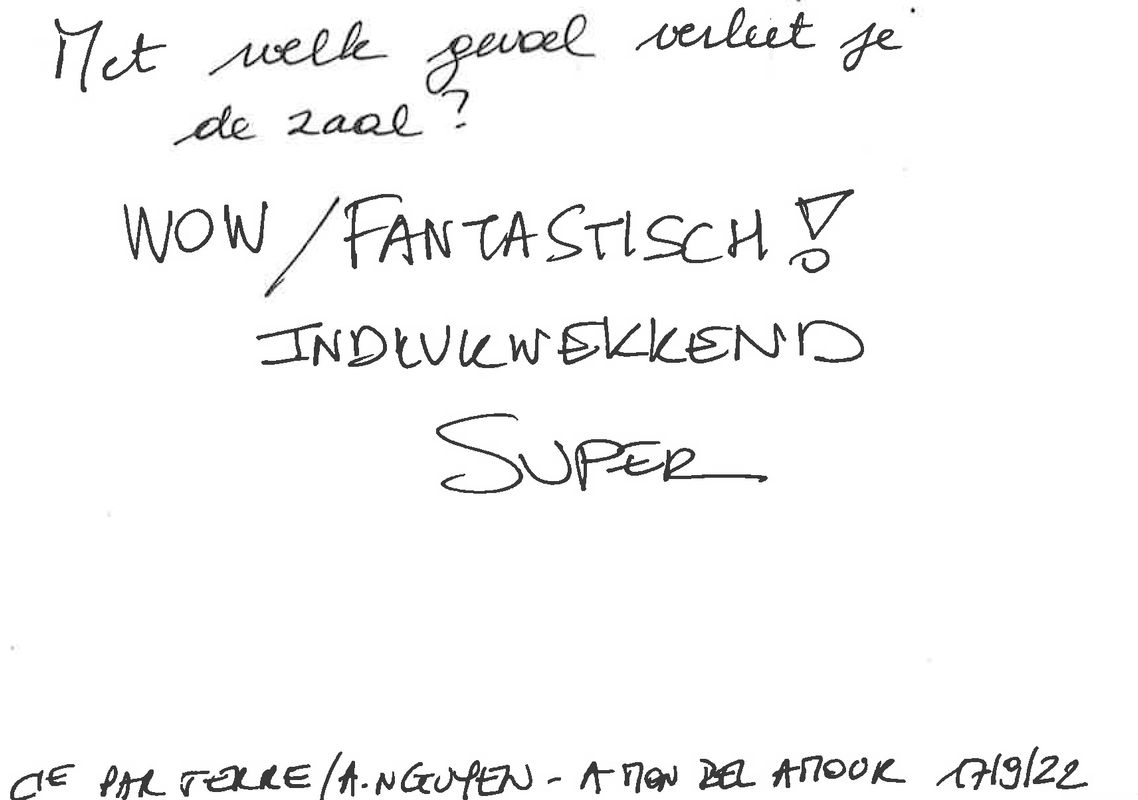 Met welk gevoel verliet je
de zaal?
WOW / FANTASTISCH!
INDRUKWEKKEND
SUPER
CIE PAR TERRE / A. NGUYEN - A MON BEL AMOUR 17/9/22